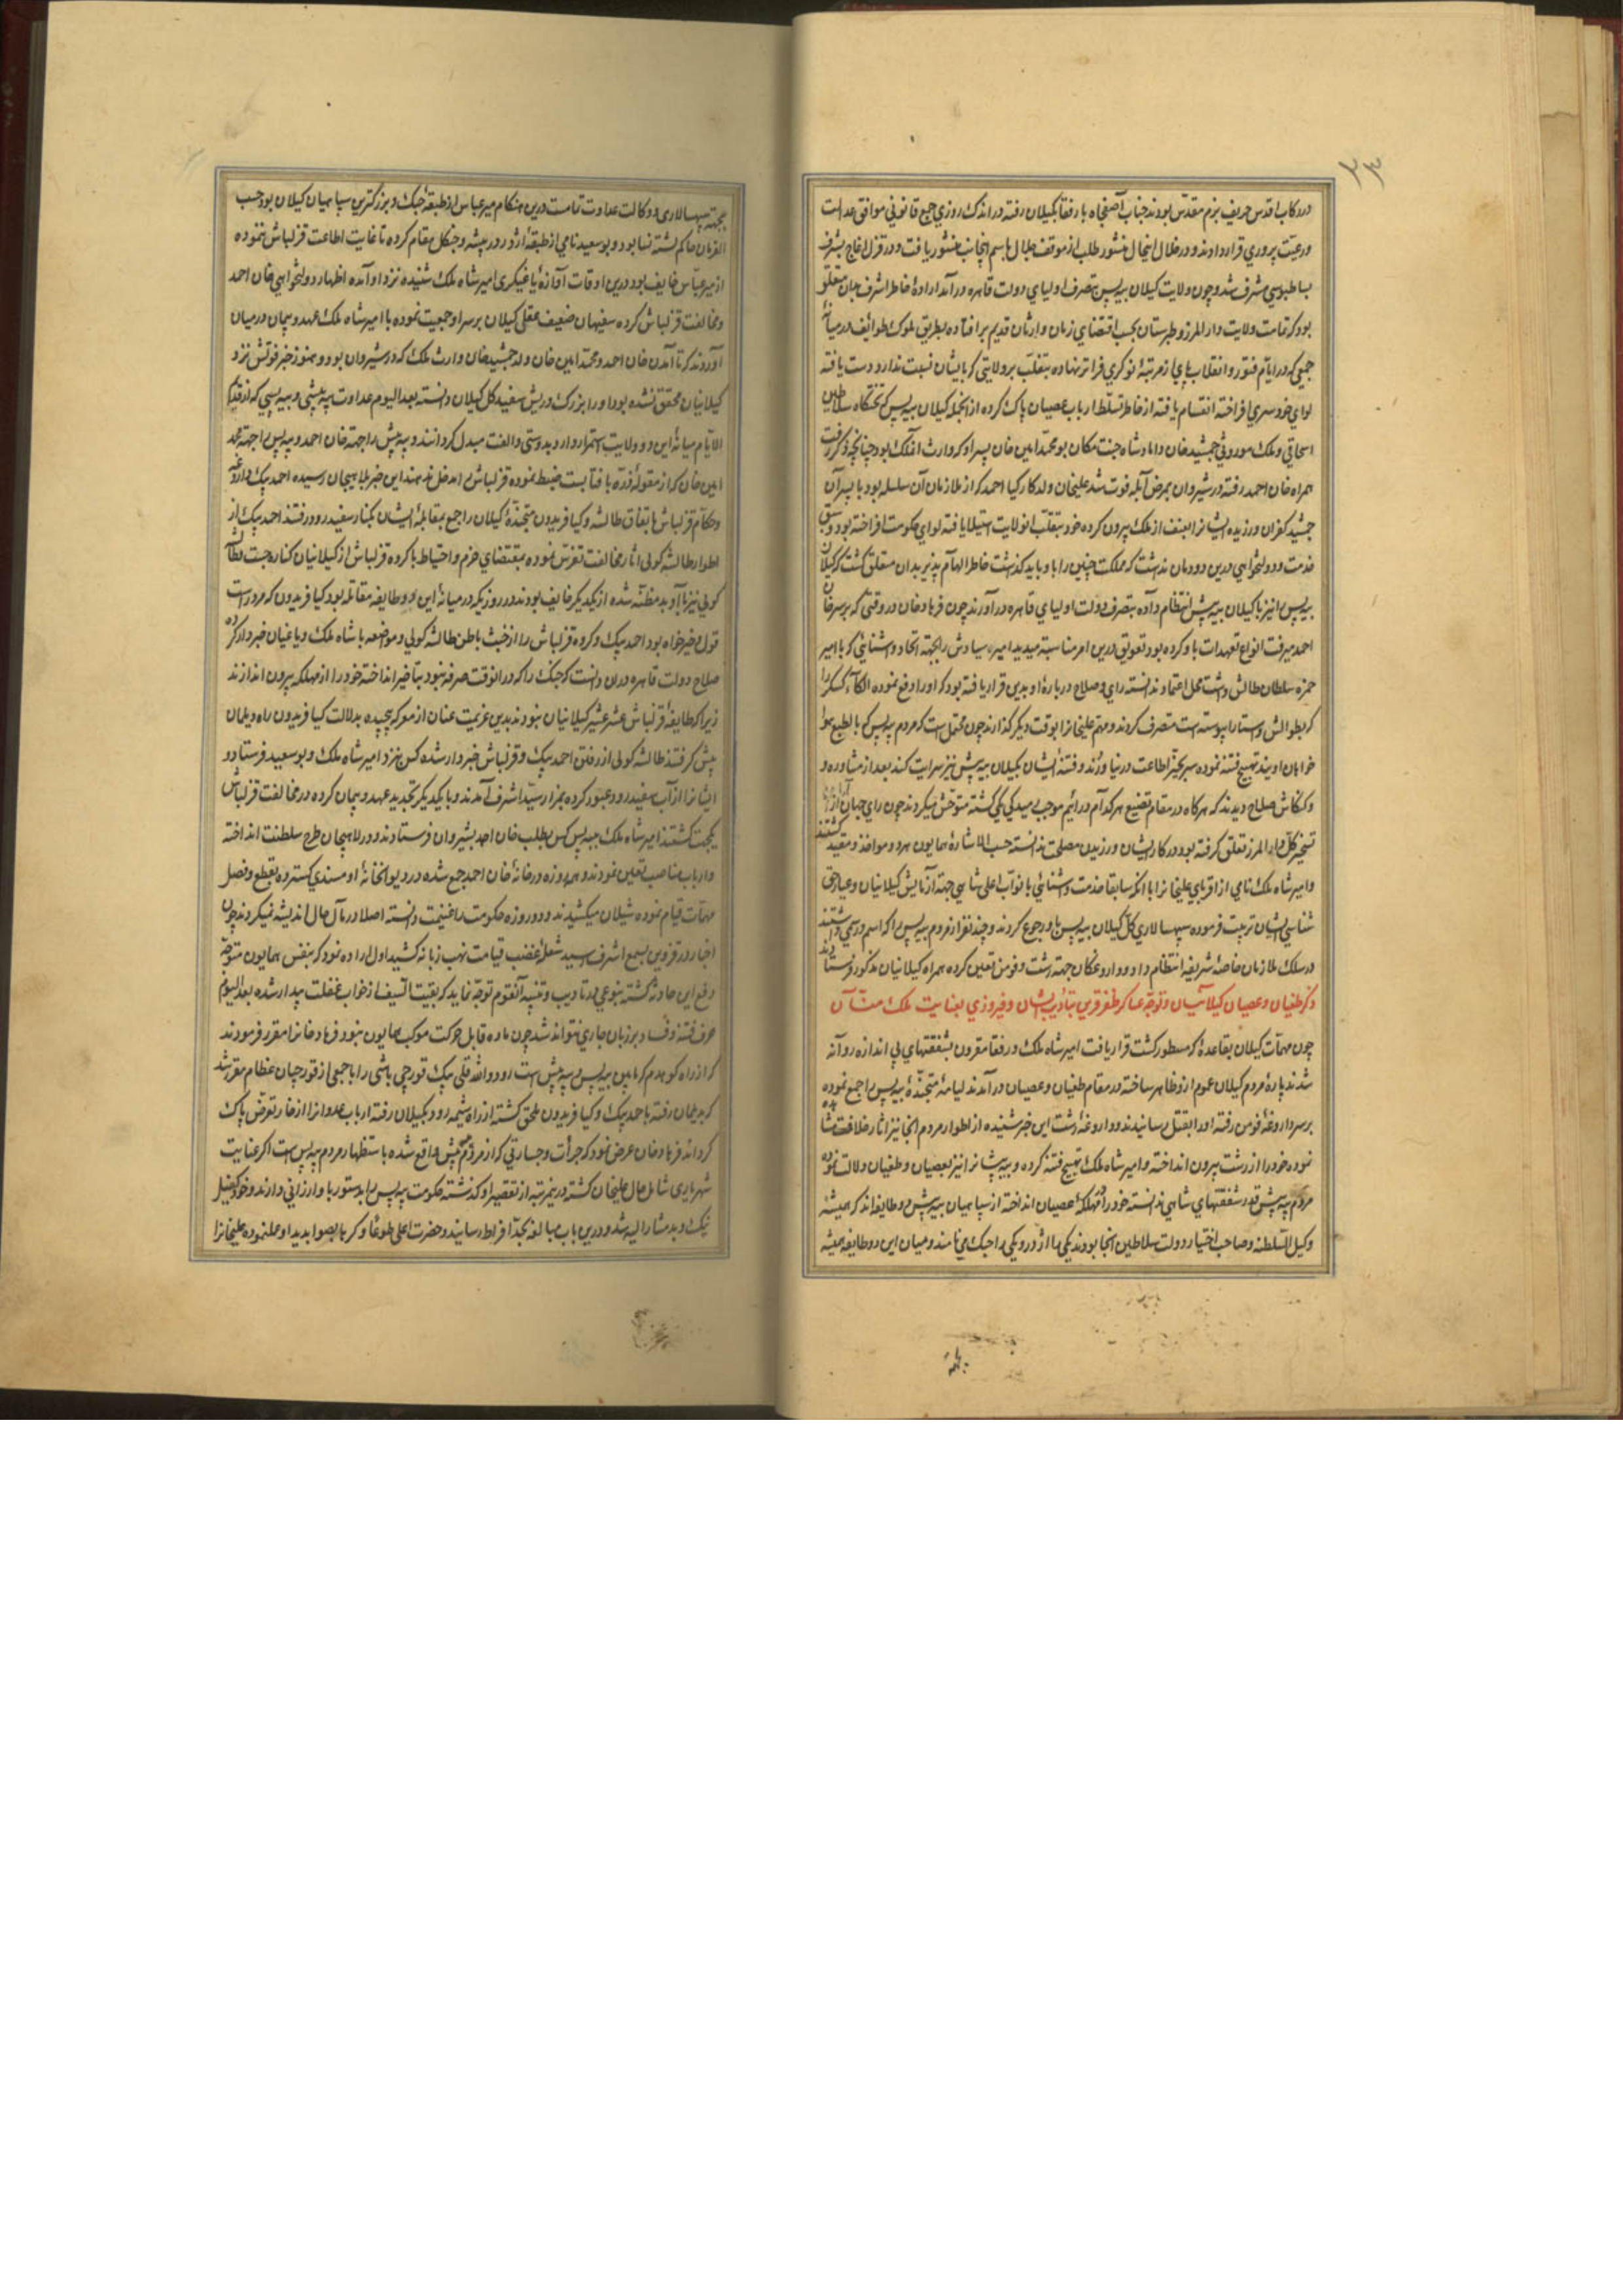 ۳۳
در رکاب اقدس حریف بزم مقدس بودند جناب آصفجاه با رفقا بگیلان رفته در اندک روزی جمع قانونی موافق عدالت
و رعیت پروری قرار دادند و در خلال اینحال منشور طلب از موقف جلال باسم آنجناب منشور یافت و در قزل اغاج بشرف
بساطبوسی مشرف شد و چون ولایت کیلان بیه پس بتصرف اولیای دولت قاهره درآمد اراده خاطر اشرف بدان متعلق
بود که تمامت ولایت دار المرز و طبرستان بحسب اقتضای زمان وارثان قدیم برافتاده بطریق ملوک طوایف در میانه
جمعی که در ایام فتور و انقلاب پای از مرتبه نوکری فراتر نهاده بتغلب بر ولایتی که بایشان نسبت ندارد دست یافته
لوای خودسری افراخته انقسام یافته از خاطر تسلط ارباب عصیان پاک کرده از آنجمله کیلان بیه پس که تختگاه سلاطین
اسحاقی و ملک موروثی جمشید خان داماد شاه جنت مکان بود محمد امین خان پسر او که وارث آنملک بود چنانچه ذکر رفت
همراه خان احمد رفته در شیروان بمرض آبله فوت شد علیخان ولد کارکیا احمد که از ملازمان آن سلسله بود با پسران
جمشید کفران ورزیده ایشانرا بعنف از ملک بیرون کرده خود بتغلب آنولایت استیلا یافته لوای حکومت افراخته بود و سبق
خدمت و دولتخواهی درین دودمان نداشت که مملکت چنین را باو باید گذاشت خاطر الهام پذیر بدان متعلق گشت که کیلان
بیه پس را نیز با کیلان بیه پیش انتظام داده بتصرف دولت اولیای قاهره درآورند چون فرهاد خان در وقتی که بر سر خان
احمد میرفت انواع تعهدات باو کرده بود تعویق درین امر مناسبتر میدید امیره سیاوش را بجهة اتحاد و آشنائی که با امیر
حمزه سلطان طالش داشت محل اعتماد ندانسته رای و صلاح درباره او بدین قرار یافته بود که او را دفع نموده الکاء کسکر را
که بطوالش و آستارا پیوسته است متصرف کردند و مهم علیخانرا بوقت دیگر گذارند چون محتمل است که مردم بیه پس که بالطبع هوا
خواهان اویند تهییج فتنه نموده سر بچنبر اطاعت در نیاورند و فتنه ایشان بگیلان بیه پیش نیز سرایت کند بعد از مشاوره و
کنکاش صلاح دیدند که هرگاه در مقام تضییع هر کدام درآئیم موجب بیمیدگی یکی گشته متوحش میگردند چون رای جهان آرا
تسخیر کل دار المرز تعلق گرفته بود در کار ایشان ورزیدن مصلحت ندانسته حسب الاشاره همایون هر دو مواخذ و مقید گشتند
و امیر شاه ملک نامی از اقربای علیخانرا با آنکه سابقا خدمت و آشنائی با نواب اعلی شاهی جهة آزمایش کیلانیان و عیار حق
شناسی ایشان تربیت فرموده سپهسالاری کل کیلان بیه پس باو رجوع کردند و چند نفر از مردم بیه پس را که اسم و رسمی داشتند
در سلک ملازمان خاصه شریفه انتظام داد و داروغگان جهة رشت و فومن تعیین کرده همراه کیلانیان مذکور فرستادند
ذکر طغیان و عصیان کیلانیان و توجه عساکر ظفر قرین بتأدیب ایشان و فیروزی بعنایت ملک منّان
چون مهمات کیلان بقاعدۀ که مسطور گشت قرار یافت امیر شاه ملک و رفقا مقرون بشفقتهای بی اندازه روانه
شدند پارۀ مردم کیلان عموم از و ظاهر ساخته در مقام طغیان و عصیان درآمدند لیامۀ متجنّدۀ بیه پس را جمع نموده
بر سر داروغۀ فومن رفته او را بقتل رسانیدند و داروغۀ رشت این خبر شنیده از اطوار مردم آنجا نیز آثار خلاف مشاهده
نموده خود را از رشت بیرون انداخته و امیر شاه ملک تهییج فتنه کرده و بیه پیشانرا نیز بعصیان و طغیان دلالت نموده
مردم بیه پیش قدر شفقتهای شاهی ندانسته خود را در مهلکۀ عصیان انداخته از سپاهیان بیه پیش دو طایفه اند که همیشه
وکیل السلطنه و صاحب اختیار دولت سلاطین آنجا بودند یکی را اژدر و یکی را جپک می نامند و میان این دو طایفه همیشه
بجهة
بجهة سپهسالاری و وکالت عداوت تمامست درین هنگام میر عباس از طبقۀ جپک و بزرگترین سپاهیان کیلان بود حسب
الفرمان حاکم لشته نشا بود و بوسعید نامی از طبقۀ اژدر در بیشه و جنگل مقام کرده تا غایت اطاعت قزلباش ننموده
از میر عباس خایف بود درین اوقات آوازۀ یاغیگری امیر شاه ملک شنیده نزد او آمده اظهار دولتخواهی خان احمد
و مخالفت قزلباش کرده سفیهان ضعیف عقل کیلان بر سر او جمعیت نموده با امیر شاه ملک عهد و پیمان در میان
آوردند که تا آمدن خان احمد و محمد امین خان ولد جمشید خان وارث ملک که در شیروان بود و هنوز خبر فوتش نزد
کیلانیان محقق نشده بود او را بزرگ و ریش سفید کل کیلان دانسته بعد الیوم عداوت بیه پیشی و بیه پسی که از قدیم
الایام میانۀ این دو ولایت استمرار دارد بدوستی و الفت مبدل گردانند و بیه پیش را جهة خان احمد و بیه پس را جهة محمد
امین خان که از مقولۀ ذره با آفتابست ضبط نموده قزلباش را مدخل ندهند این خبر بلاهیجان رسیده احمد بیک داروغه
و حکام قزلباش باتفاق طالشه و کیا فریدون متجنّدۀ کیلان راجع بمقابلۀ ایشان بکنار سفید رود رفتند احمد بیک از
اطوار طالشه کولی آثار مخالفت تفرس نموده بمقتضای حزم و احتیاط با گروه قزلباش از کیلانیان کناره جست طالشه
کولی نیز با او بدمظنه شده از یکدیگر خایف بودند در روزی که در میانۀ این دو طایفه مقاتله بود کیا فریدون که مرد راست
قول و خیرخواه بود احمد بیک و گروه قزلباش را از خبث باطن طالشه کولی و مواضعه با شاه ملک و یاغیان خبردار کرده
صلاح دولت قاهره در آن دانست که جنگ را که در آنوقت صرفه نبود بتأخیر انداخته خود را از مهلکه بیرون اندازند
زیرا که طایفۀ قزلباش عشر عشیر کیلانیان نبودند بدین عزیمت عنان از معرکه پیچیده بدلالت کیا فریدون راه دیلمان
پیش گرفتند طالشه کولی از رفتن احمد بیک و قزلباش خبردار شده کس نزد امیر شاه ملک و بوسعید فرستاد و
ایشانرا از آب سفید رود عبور کرده بمزار سید اشرف آمدند و با یکدیگر تجدید عهد و پیمان کرده در مخالفت قزلباش
یکجهت گشتند امیر شاه ملک ببیه پس کس بطلب خان احمد بشیروان فرستادند و در لاهیجان طرح سلطنت انداخته
و ارباب مناصب تعیین نمودند و همه روزه در خانۀ خان احمد جمع شده در دیوانخانۀ او مسندی گسترده بقطع و فصل
مهمات قیام نموده شیلان میکشیدند و دو روزه حکومت را غنیمت دانسته اصلا در مآل حال اندیشه نمیکردند چون
اخبار در قزوین بسمع اشرف رسید شعلۀ غضب قیامت نهب زبانه کشید اول اراده نمود که بنفس همایون متوجه
دفع این حادثه گشته بنوعی در تأدیب و تنبیه آنقوم توجه نماید که بقیت السیف از خواب غفلت بیدار شده بعد الیوم
حرف فتنه و فساد بر زبان جاری نتواند شد چون ماده قابل حرکت موکب همایون نبود فرهاد خانرا مقرر فرمودند
که از راه کوهدم که مابین بیه پس و بیه پیش است رود و الله قلی بیک قورچی باشی را با جمعی از قورچیان عظام مقرر شد
که بدیلمان رفته باحمد بیک و کیا فریدون ملحق گشته از راه شیمه رود بگیلان رفته ارباب عدوانرا از خار تعرض پاک
گرداند فرهاد خان عرض نمود که جرأت و جسارتی که از مردم بیه پیش واقع شده باستظهار مردم بیه پس است اگر عنایت
شهریاری شامل حال علیخان گشته درینمرتبه از تقصیر او گذشته حکومت بیه پس را بدستور باو ارزانی دارند و خود کفیل
نیک و بد مشار الیه شد و درین باب مبالغه بحد افراط رسانید و حضرت اعلی طوعا و کرها بصوابدید او عمل نموده علیخانرا